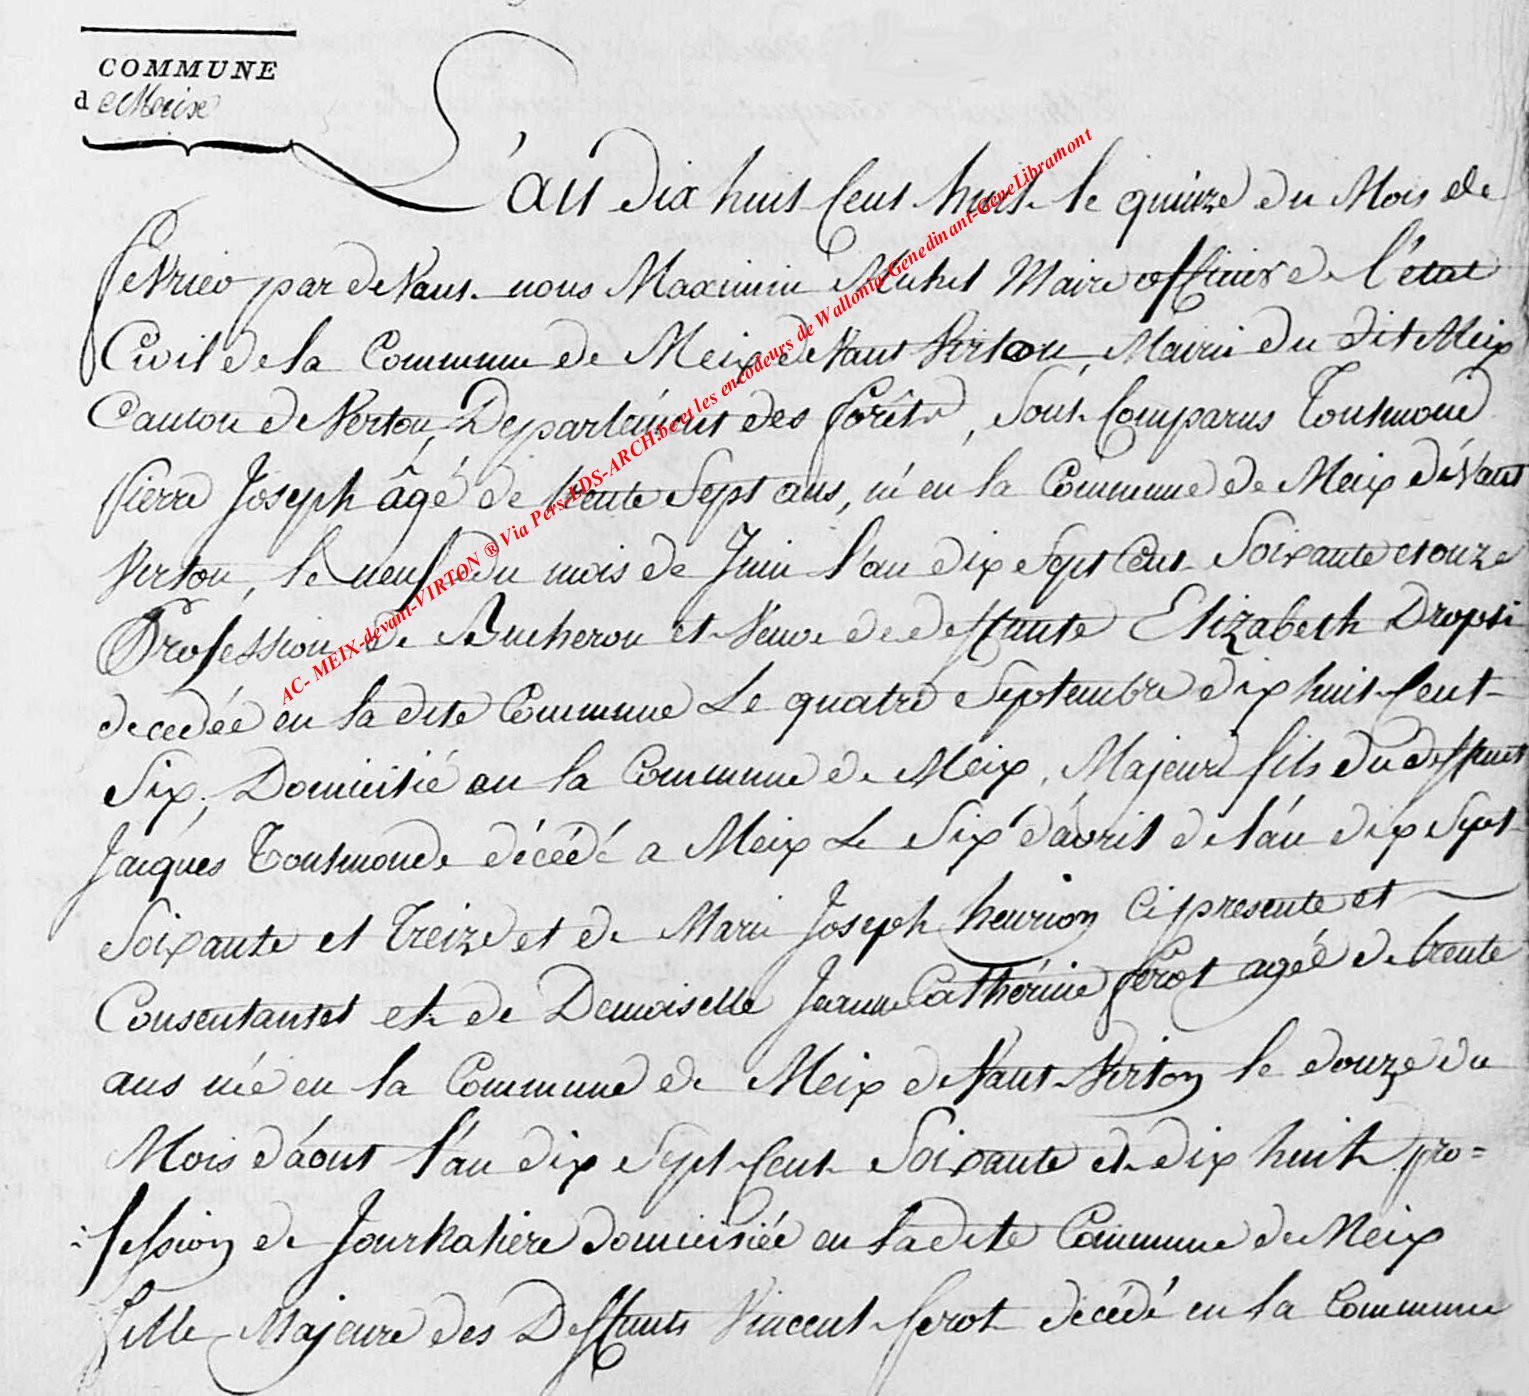 COMMUNE
de Meix
L'an dix huit Cent huit le quinze du Mois de
fevrier par deVant nous Maximin Michel Maire officier de l'état
Civil de la Commune de Meix deVant Virton Mairie du dit Meix
Canton de Virton, Departement des forêts, sont Comparus Toutmond
Pierre Joseph âgé de trente Sept ans, né en la Commune de Meix deVant
Virton, le neuf du mois de Juin l'an dix Sept Cent Soixante et onze
Profession de Bucheron et Veuve de deffunte Elizabeth Dropsi
decedée en la dite Commune Le quatre Septembre dix huit Cent
Six, Domicilié en la Commune de Meix, Majeur fils du deffunt
Jacques Toutmonde décédé a Meix Le Six d'avril de l'an dix Sept
Soixante et Treize et de Marie Joseph henrion Ci presente et
Consentantes et de Demoiselle Jeanne Cathérine ferot agée de trente
ans née en la Commune de Meix deVant Virton le douze du
Mois d'aout l'an dix Sept Cent Soixante et dix huit pro=
=fession de Journalière domiciliée en la dite Commune de Meix
fille Majeure des Deffunts Vincent ferot décédé en la Commune
AC- MEIX-devant-VIRTON ® Via Pers-LDS-ARCH.be et les encodeurs de Wallonia-Genedinant-GeneLibramont